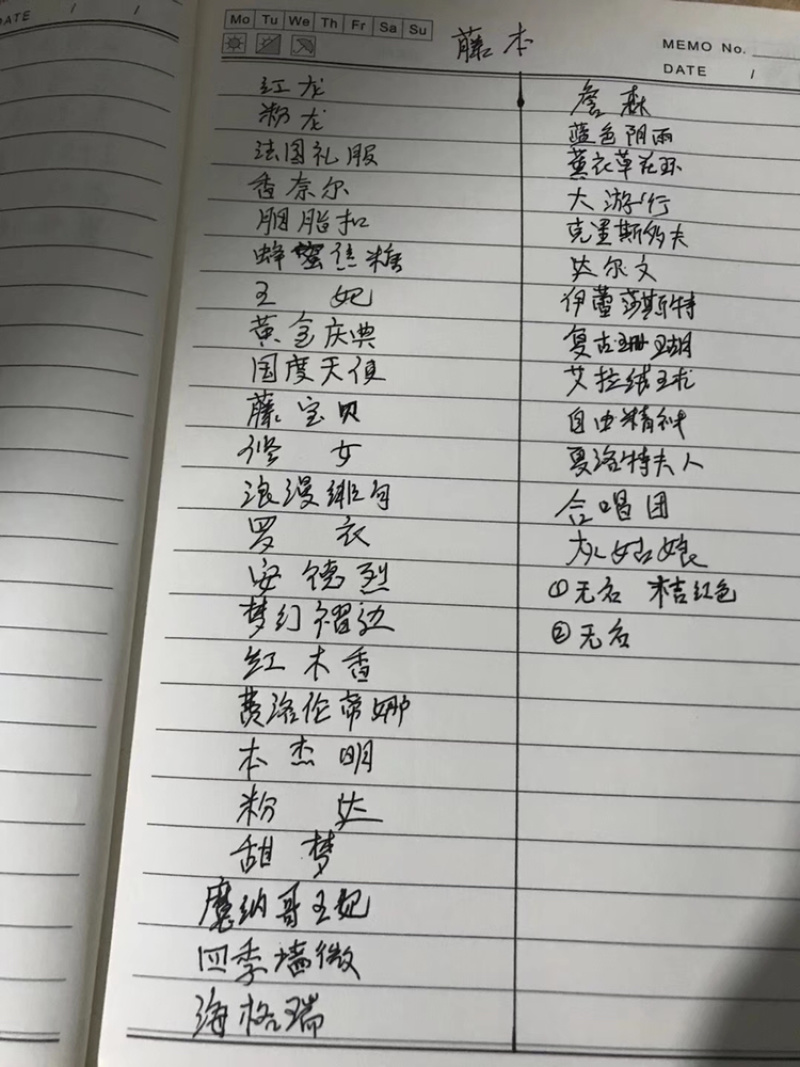 DATE / /
Mo Tu We Th Fr Sa Su
藤本
MEMO No.
DATE /
红龙
粉龙
法国礼服
香奈尔
胭脂扣
蜂蜜焦糖
王妃
黄金庆典
国度天使
藤宝贝
修女
浪漫绯句
罗衣
安德烈
梦幻褶边
红木香
黄洛伦蒂娜
本杰明
粉达
甜梦
摩纳哥王妃
四季墙微
海格瑞
詹森
蓝色阴雨
薰衣草花环
大游行
克里斯多夫
达尔文
伊蕾莎斯特
复古珊瑚
艾拉绒王龙
自由精神
夏洛特夫人
合唱团
灰姑娘
①无名 桔红色
②无名